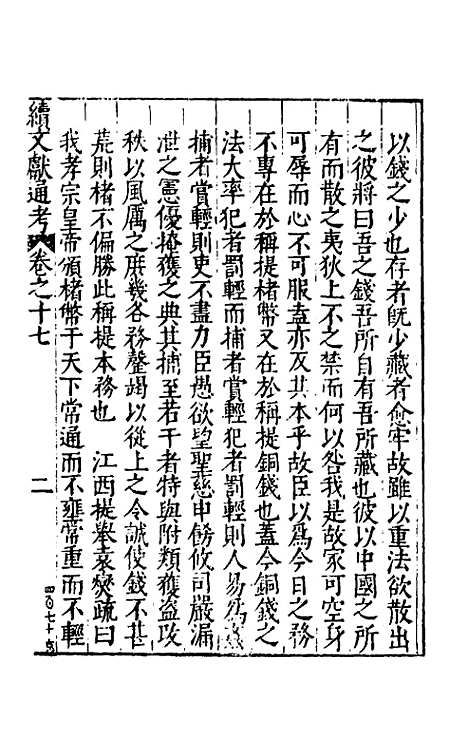 以錢之少也存者既少藏者愈牢故雖以重法欲散出
之彼將曰吾之錢吾所自有吾所藏也彼以中國之所
有而散之夷狄上不之禁而何以咎我是故家可空身
可辱而心不可服蓋亦及其本乎故臣以爲今日之務
不專在於稱提楮幣又在於稱提銅錢也蓋今銅錢之
法大率犯者罰輕而捕者賞輕犯者罰輕則人易爲
捕者賞輕則吏不盡力臣愚欲望聖慈申飭攸司嚴漏
泄之憲優掩獲之典其捕至若干者特與附類獲盜攻
秩以風厲之庶幾各務罄竭以從上之令誠使錢不甚
荒則楮不偏勝此稱提本務也　江西提舉袁燮疏曰
我孝宗皇帝頒楮幣于天下常通而不壅常重而不輕
續文獻通考　卷之十七　二